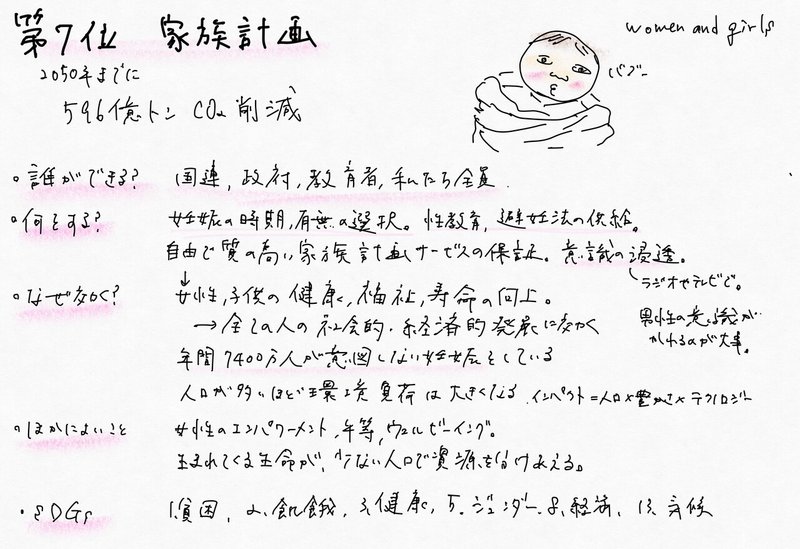 第7位 家族計画
women and girls
2050年までに
596億トン CO₂削減
バブー
・誰ができる? 国連、政府、教育者、私たち全員
・何をする? 妊娠の時期、有無の選択。性教育、避妊法の供給。
自由で質の高い家族計画サービスの保証。意識の浸透。
ラジオやテレビで。
男性の意識が
かわるのが大事。
・なぜ効く? 女性、子供の健康、福祉、寿命の向上。
→全ての人の社会的・経済的発展に効く
年間7400万人が意図しない妊娠をしている
人口が多いほど環境負荷は大きくなる インパクト=人口×豊かさ×テクノロジー
・ほかによいこと 女性のエンパワーメント、平等、ウェルビーイング。
生まれてくる生命が、少ない人口で資源を分けあえる。
・SDGs 1.貧困、2.飢餓、3.健康、5.ジェンダー、8.経済、13.気候